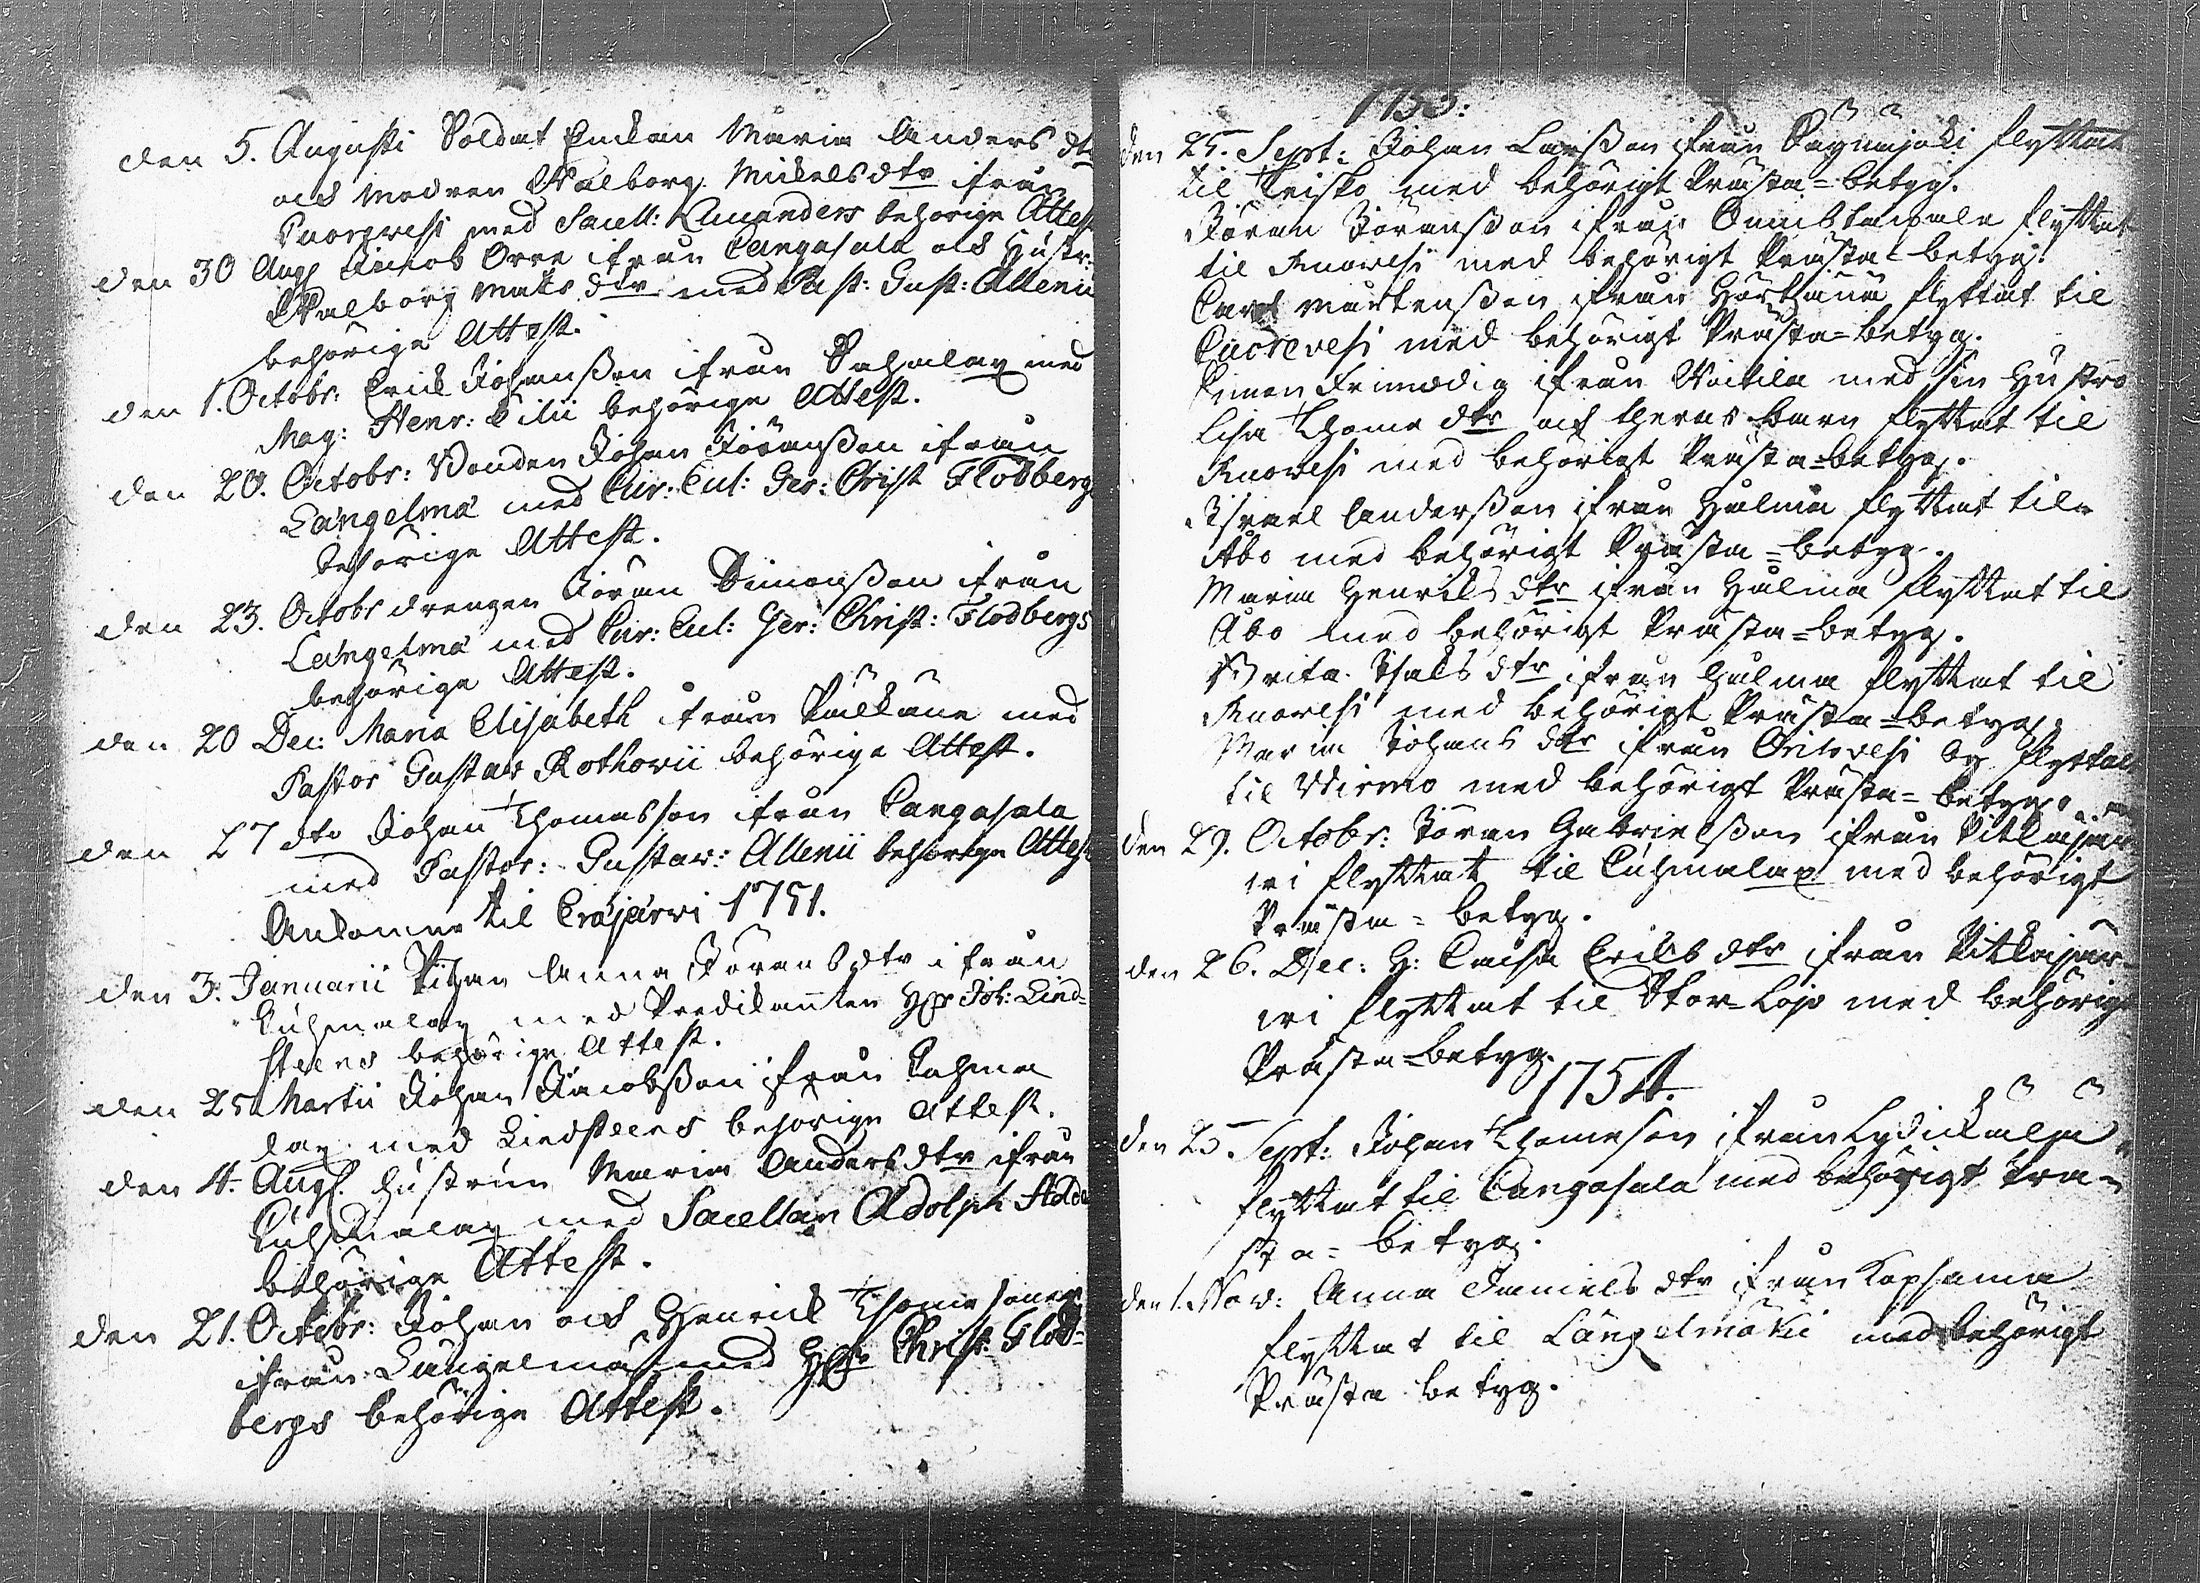 den 5. Augusti Soldat Enckan Maria Anders dtr
och Modren Walborg Mickelsdtr ifrån
Ruovesi med Sacell: Limanders behörige Attest
den 30 Aug Jacob Orre ifrån Cangasala och Hustr:
Walborg Mats dtr med Past: Gust: Allenii
behörige Attest.
den 1. Octobr: Erick Johansson ifrån Sahmalax med
Mag: Henr: Lilii behörige Attest.
den 20. Octobr: Bonden Johan Jöransson ifrån
Längelmä med Cur: Cul: Ger: Christ Flodbergs
behörige Attest.
den 23. Octobr drengen Jöran Simonsson ifrån
Längelmä med Cur: Cul: Ger: Christ: Flodbergs
behörige Attest.
den 20 Dec: Maria Elisabeth ifrån Pälkäne med
Pastor Gustav Rothovii behörige Attest.
den 27 dto Johan Thomasson ifrån Cangasala
med Pastor: Gustav: Allenii behörige Attest
Ankomne til Eräjärvi 1751.
den 3. Januarii Pigan Anna Jörans dtr ifrån
Kuhmalax med Predikanten Hr Joh: Lind=
steens behörige Attest.
den 25 Martii Johan Jacobsson ifrån Kuhma
lax med Lindsteens behörige Attest.
den 4. Aug. Hustrun Maria Anders dtr ifrån
Kuhmalax med Sacellan Adolph
behörige Attest.
den 21. Octobr: Johan och Henrick Thomesoner
ifrån Längelmä med Hr Christ: Flod=
bergs behörige Attest.
1753:
den 25. Sept: Johan Larsson ifrån Säynäjoki flyttat
til Teisko med behörigt Prästa=betyg.
Jöran Jöransson ifrån Onnistaipale flyttat
til Ruovesi med behörigt Prästa=betyg.
Carl Mårtensson ifrån Hörtsänä flyttat til
Ruovesi med behörigt Prästa=betyg.
Simon Frimodig ifrån Woitila med sin Hustro
Lisa Thome dtr och theras barn flyttat til
Ruovesi med behörigt Prästa=betyg.
Israel Andersson ifrån Hulma flyttat til
Åbo med behörigt Prästa=betyg.
Maria Henricks dtr ifrån Hulma flyttat til
Åbo med behörigt Prästa=betyg.
Brita Isaks dtr ifrån Hulma flyttat til
Ruovesi med behörigt Prästa=betyg.
Maria Johans dtr ifrån Orihvesi by flyttat
til Wirmo med behörigt Prästa=betyg.
den 29. Octobr: Jöran Gabrielsson ifrån Pitkäjär
wi flyttat til Kuhmalax med behörigt
Prästa=betyg.
den 26. Dec: H: Caisa Ericks dtr ifrån Pitkäjär=
wi flyttat til Stor=Lojo med behörigt
Prästa=betyg.
1754.
den 25. Sept: Johan Thomeson ifrån Lydickälä
flyttat til Cangasala med behörigt Prä=
sta=betyg.
den 1. Nov: Anna Daniels dtr ifrån Kopsama
flyttat til Längelmäki med behörigt
Prästa betyg.